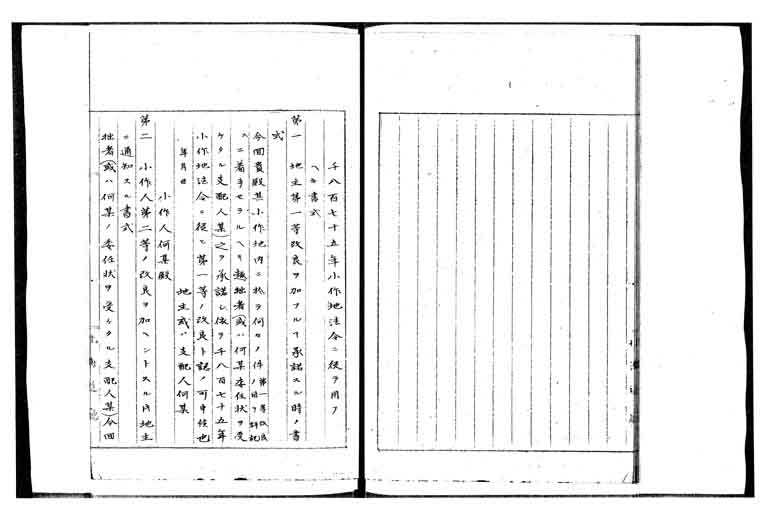 千八百七十五年小作地法令ニ従ヲ用フ
ヘキ書式
第一 地主第一等改良ヲ加フルヿ承諾スル時ノ書
式
今回貴殿某小作地内ニ於ヲ何々ノ件 第一等改良ノ目ヲ詳記
スニ着手セラルヘキ趣拙者(或ハ何某委任状ヲ受
ケタル支配人某)之ヲ承諾シ依ヲ千八百七十五年
小作地法令ニ従ヒ第一等ノ改良ト認ノ可申候也
年月日 地主或ハ支配人何某
小作人何某殿
第二 小作人第二等ノ改良ヲ加ヘントスル片地主
ニ通知スル書式
拙者(或ハ何某ノ委任状ヲ受ケタル支配人某)今回